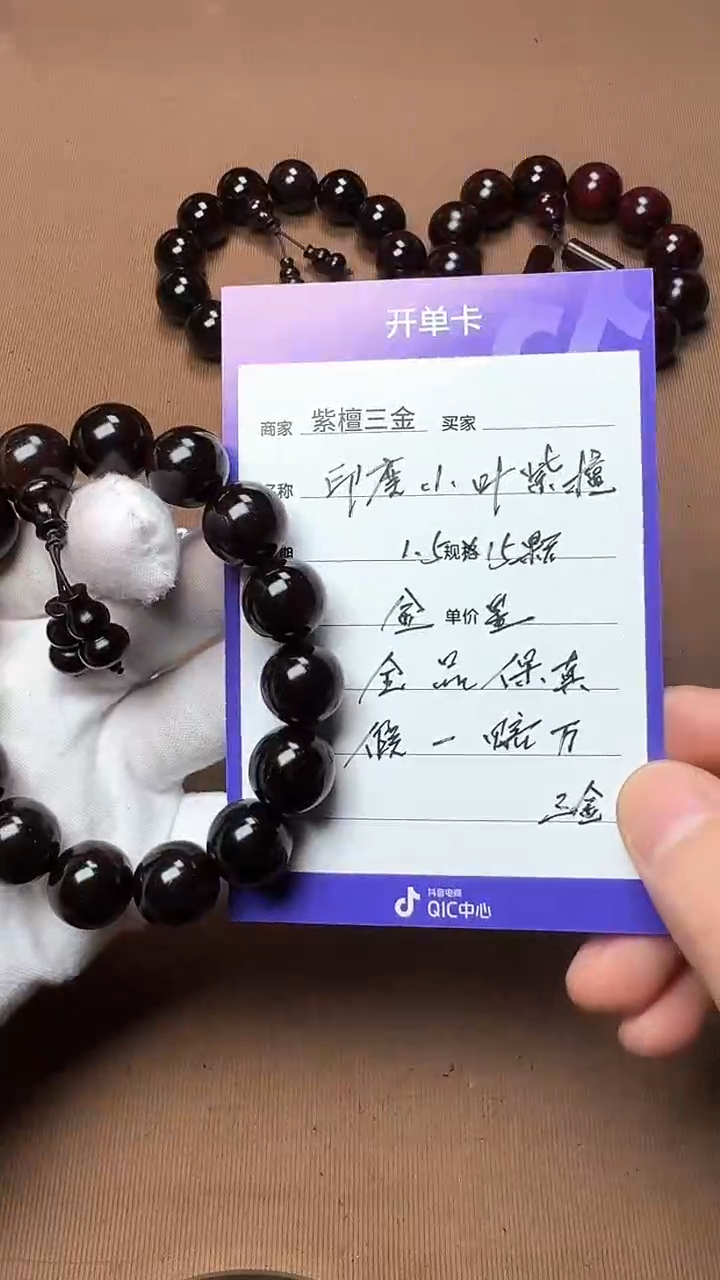 开单卡
商家 紫檀三金 买家
名称 印度小叶紫檀
期 1.5规格15颗
金 单价 鉴
全品保真
假一赔万
三金
抖音电商
QIC中心